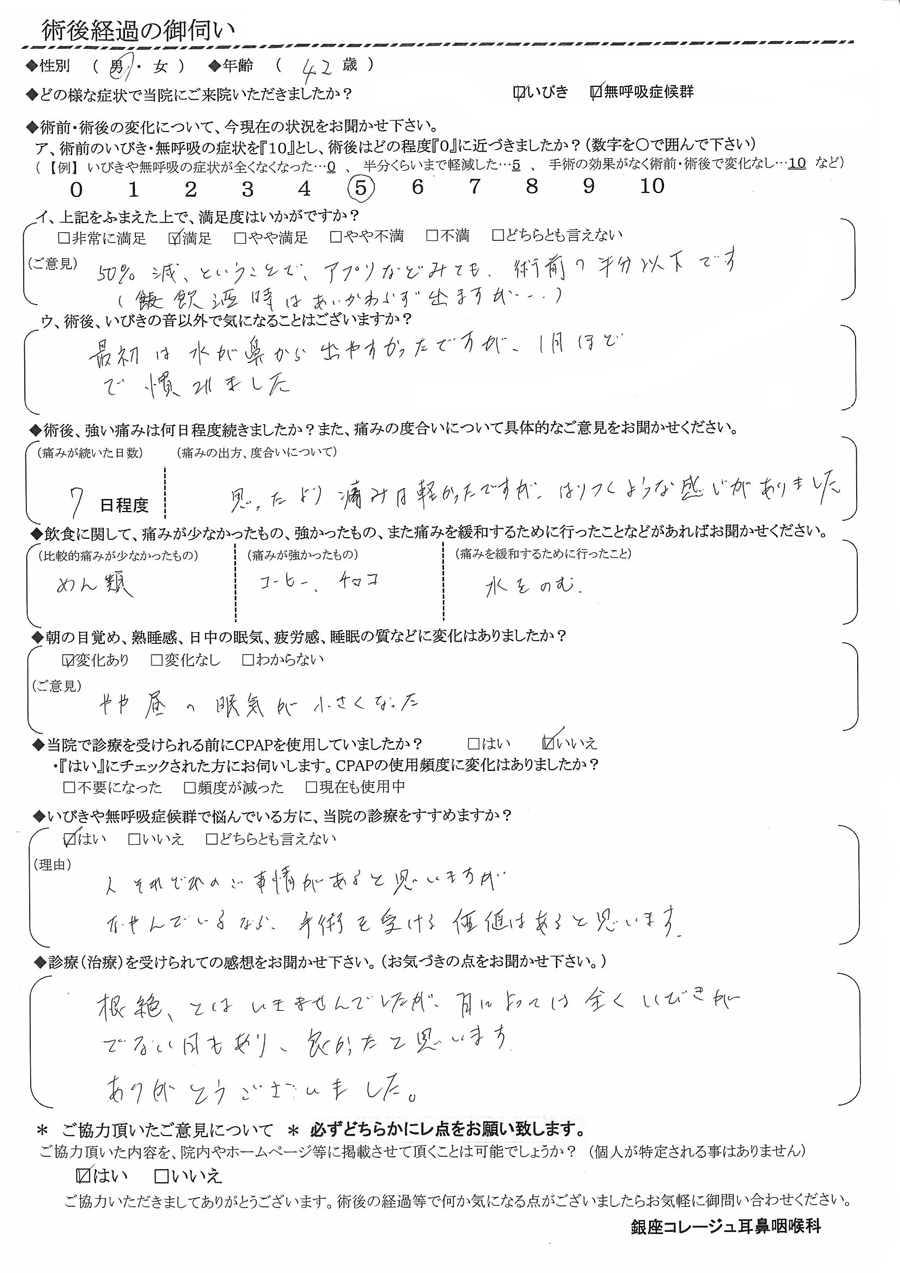 術後経過の御伺い
◆性別 ( 男 ・ 女 ) ◆年齢 ( 42 歳 )
◆どの様な症状で当院にご来院いただきましたか? ☑いびき ☑無呼吸症候群
◆術前・術後の変化について、今現在の状況をお聞かせ下さい。
ア、術前のいびき・無呼吸の症状を『10』とし、術後はどの程度『0』に近づきましたか?(数字を〇で囲んで下さい)
(【例】いびきや無呼吸の症状が全くなくなった…0 、 半分くらいまで軽減した…5 、 手術の効果がなく術前・術後で変化なし…10 など)
0 1 2 3 4 ⑤ 6 7 8 9 10
イ、上記をふまえた上で、満足度はいかがですか?
□非常に満足 ☑満足 □やや満足 □やや不満 □不満 □どちらとも言えない
(ご意見) 50% 減、ということで、アプリなどみても、術前の半分以下です
( 飲酒時はあいかわらず出ますが…。)
ウ、術後、いびきの音以外で気になることはございますか?
最初は水が鼻から出やすかったですが、1月ほど
で慣れました
◆術後、強い痛みは何日程度続きましたか?また、痛みの度合いについて具体的なご意見をお聞かせください。
(痛みが続いた日数) (痛みの出方、度合いについて)
7 日程度 思ったより痛みは軽かったですが、はりつくような感じがありました
◆飲食に関して、痛みが少なかったもの、強かったもの、また痛みを緩和するために行ったことなどがあればお聞かせください。
(比較的痛みが少なかったもの) (痛みが強かったもの) (痛みを緩和するために行ったこと)
めん類 コーヒー、チョコ 水をのむ.
◆朝の目覚め、熟睡感、日中の眠気、疲労感、睡眠の質などに変化はありましたか?
☑変化あり □変化なし □わからない
(ご意見)
やや昼の眠気が小さくなった
◆当院で診療を受けられる前にCPAPを使用していましたか? □はい ☑いいえ
・『はい』にチェックされた方にお伺いします。CPAPの使用頻度に変化はありましたか?
□不要になった □頻度が減った □現在も使用中
◆いびきや無呼吸症候群で悩んでいる方に、当院の診療をすすめますか?
☑はい □いいえ □どちらとも言えない
(理由)
人それぞれのご事情があると思いますが
なやんでいるなら、手術を受ける価値はあると思います.
◆診療(治療)を受けられての感想をお聞かせ下さい。(お気づきの点をお聞かせ下さい。)
根絶、とはいきませんでしたが、日によっては全くいびきが
でない日もあり、良かったと思います.
ありがとうございました。
* ご協力頂いたご意見について * 必ずどちらかにレ点をお願い致します。
ご協力頂いた内容を、院内やホームページ等に掲載させて頂くことは可能でしょうか? (個人が特定される事はありません)
☑はい □いいえ
ご協力いただきましてありがとうございます。術後の経過等で何か気になる点がございましたらお気軽に御問い合わせください。
銀座コレージュ耳鼻咽喉科